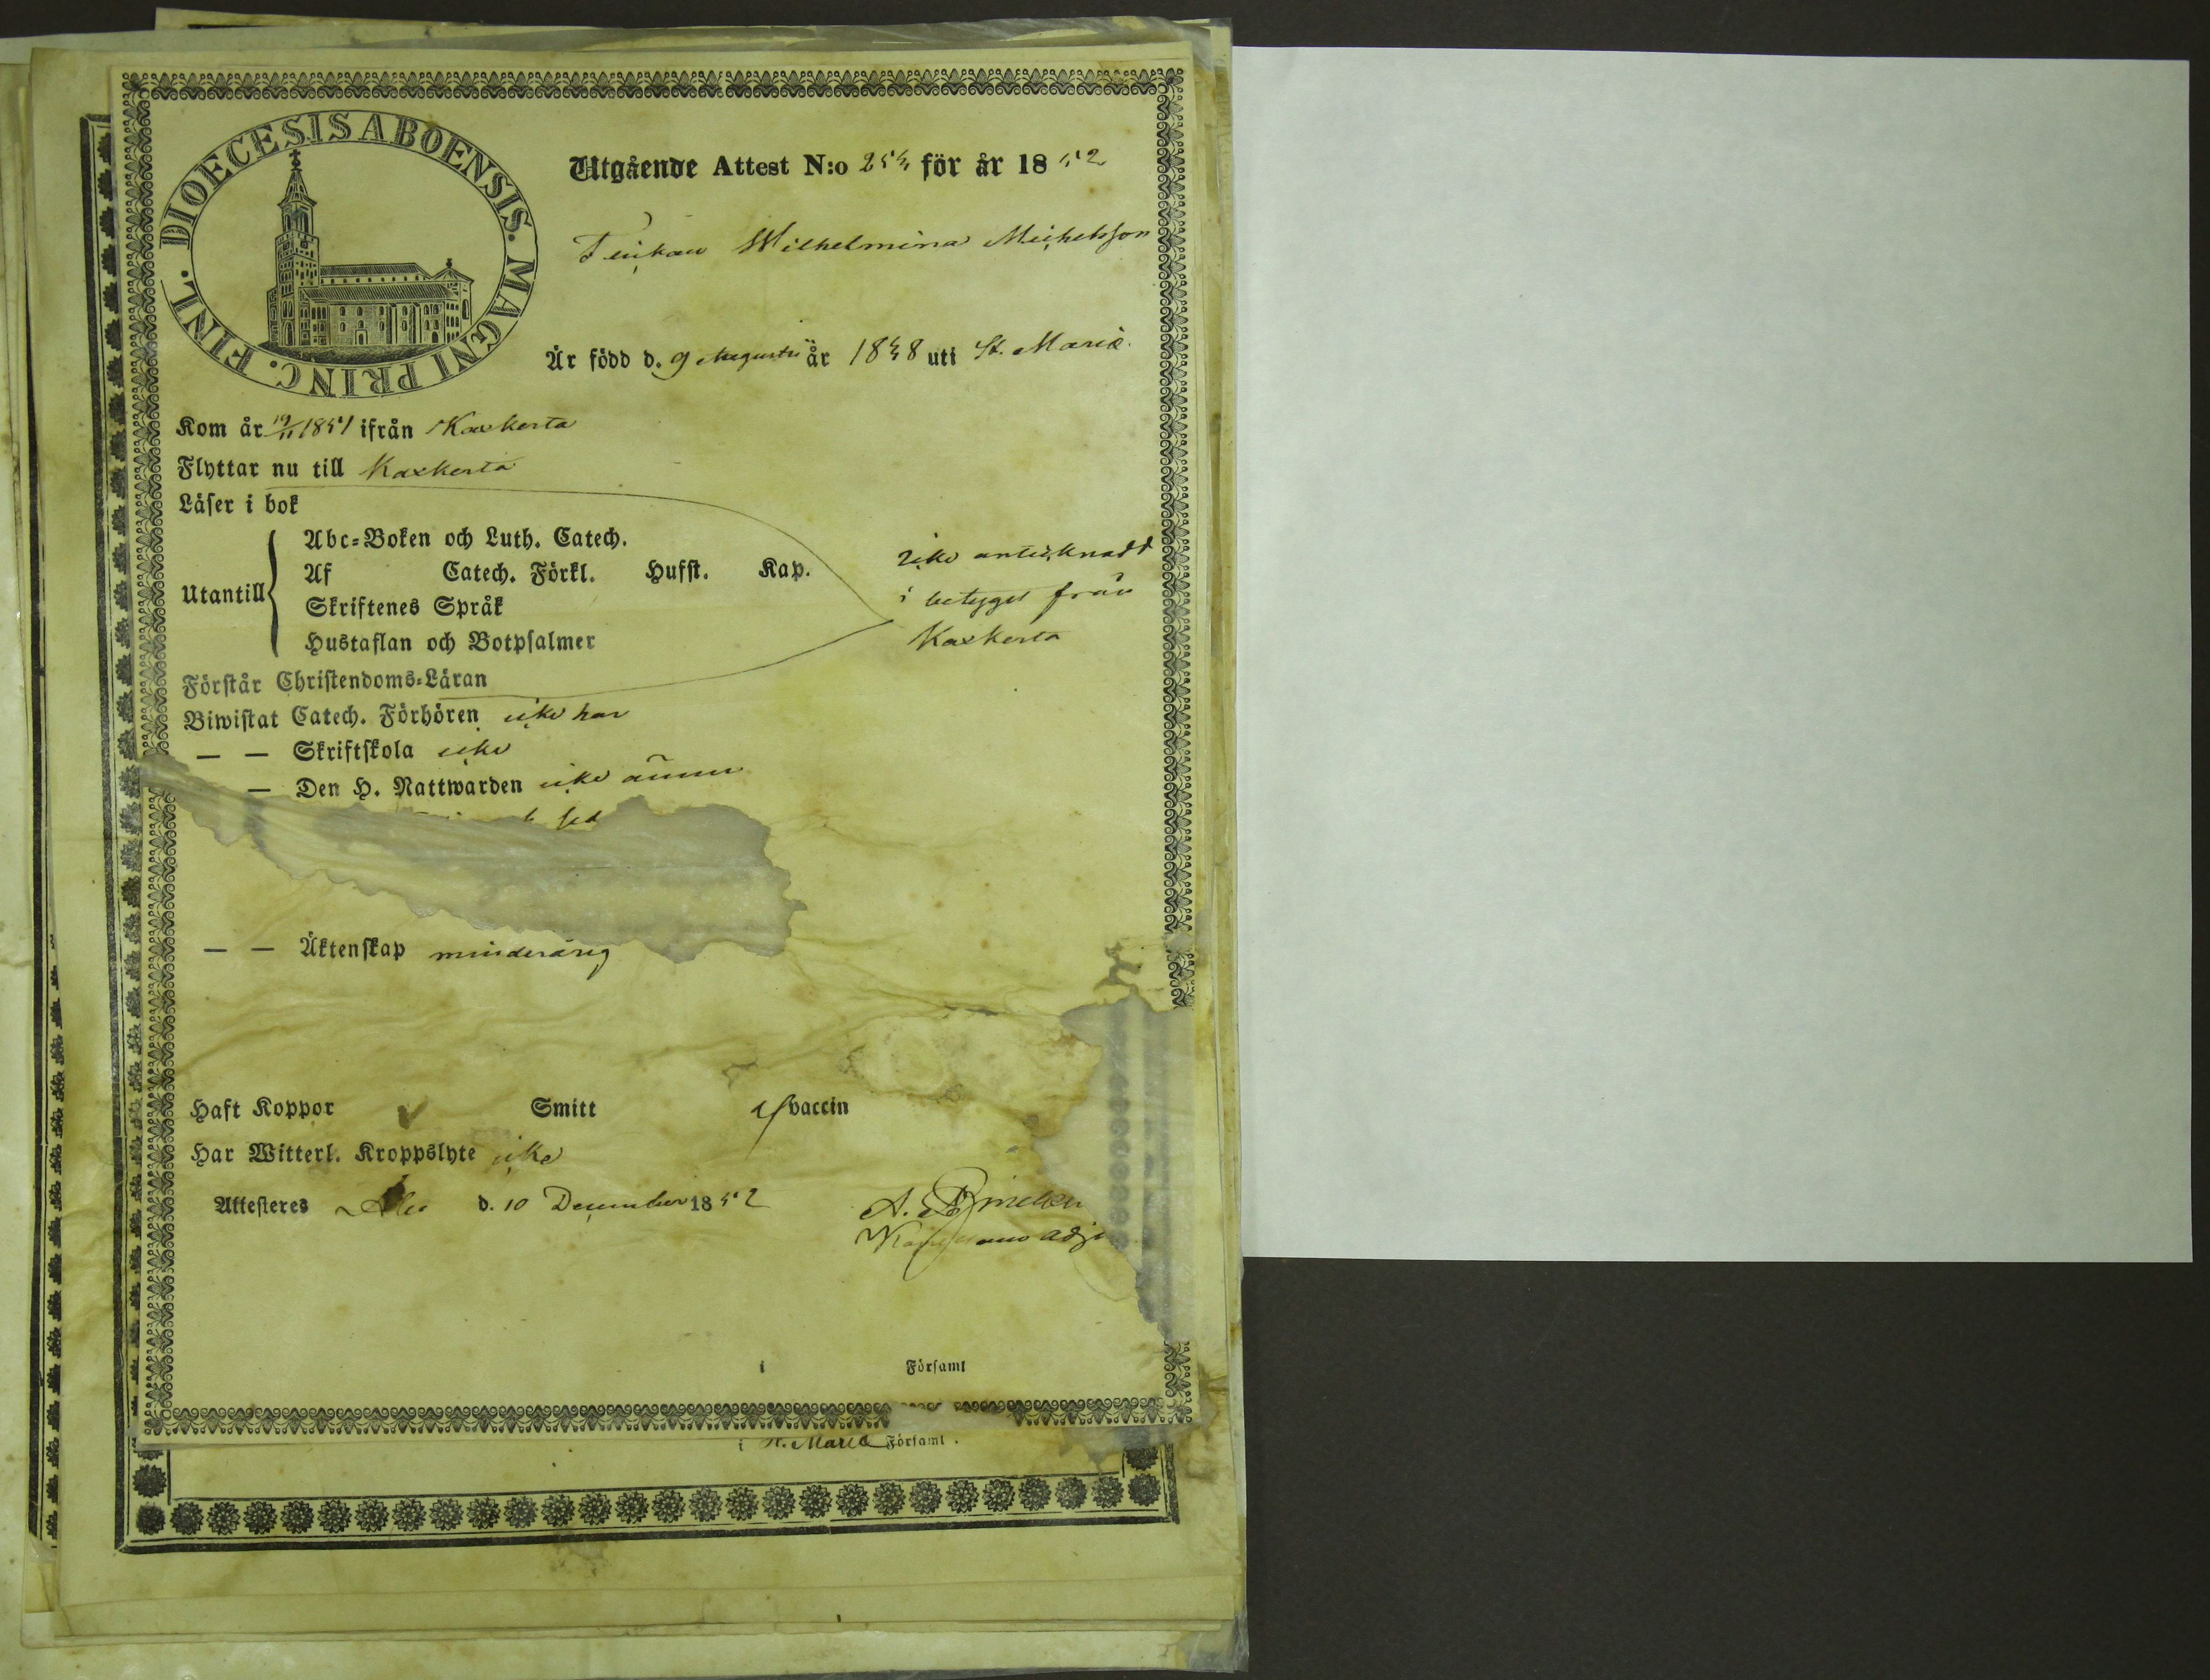 DIOECESIS ABOENSIS. MAGNI PRINC. FINL.
Utgående Attest N:o 254 för år 1852
Flickan Wilhelmina Michelsson
Är född d. 9 Augusti år 1848 uti St. Mariæ.
Kom år 19/11 1851 ifrån Kaxkerta
Flyttar nu till Kaxkerta
Läser i bok
Utantill
Abc-Boken och Luth. Catech.
Af Catech. Förkl. Hufst. Kap.
Skriftenes Språk
Hustaflan och Botpsalmer
icke antecknadt
i betyget från
Kaxkerta
Förstår Christendoms-Läran
Biwistat Catech. Förhören icke har
— — Skriftskola icke
— Den H. Nattwarden icke ännu
— — Äktenskap minderårig
Haft Koppor Smitt vaccin
Har Witterl. Kroppslyte icke
Attesteres Åbo d. 10 December 1852
A.
adj
i Församl
i St. Mariæ Församl.